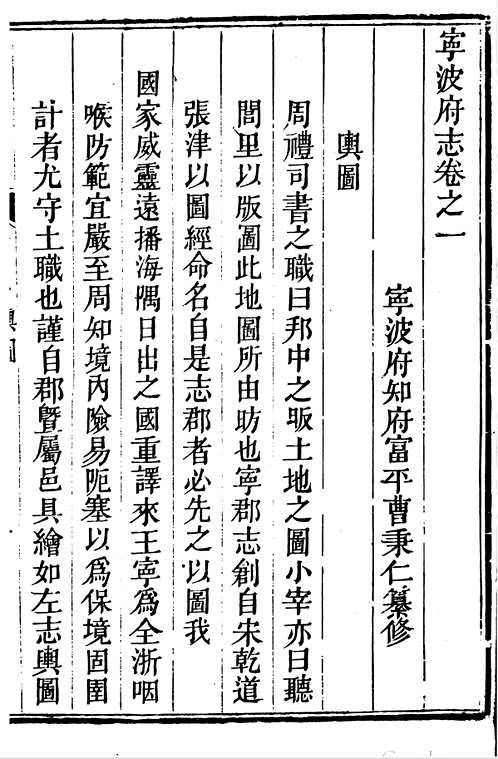 寧波府志卷之一
寧波府知府富平曹秉仁纂修
輿圖
周禮司書之職曰邦中之版土地之圖小宰亦曰聽
閭里以版圖此地圖所由昉也寧郡志創自宋乾道
張津以圖經命名自是志郡者必先之以圖我
國家威靈遠播海隅日出之國重譯來王寧為全浙咽
喉防範宜嚴至周知境內險易阨塞以爲保境固圉
計者尤守土職也謹自郡曁屬邑具繪如左志輿圖